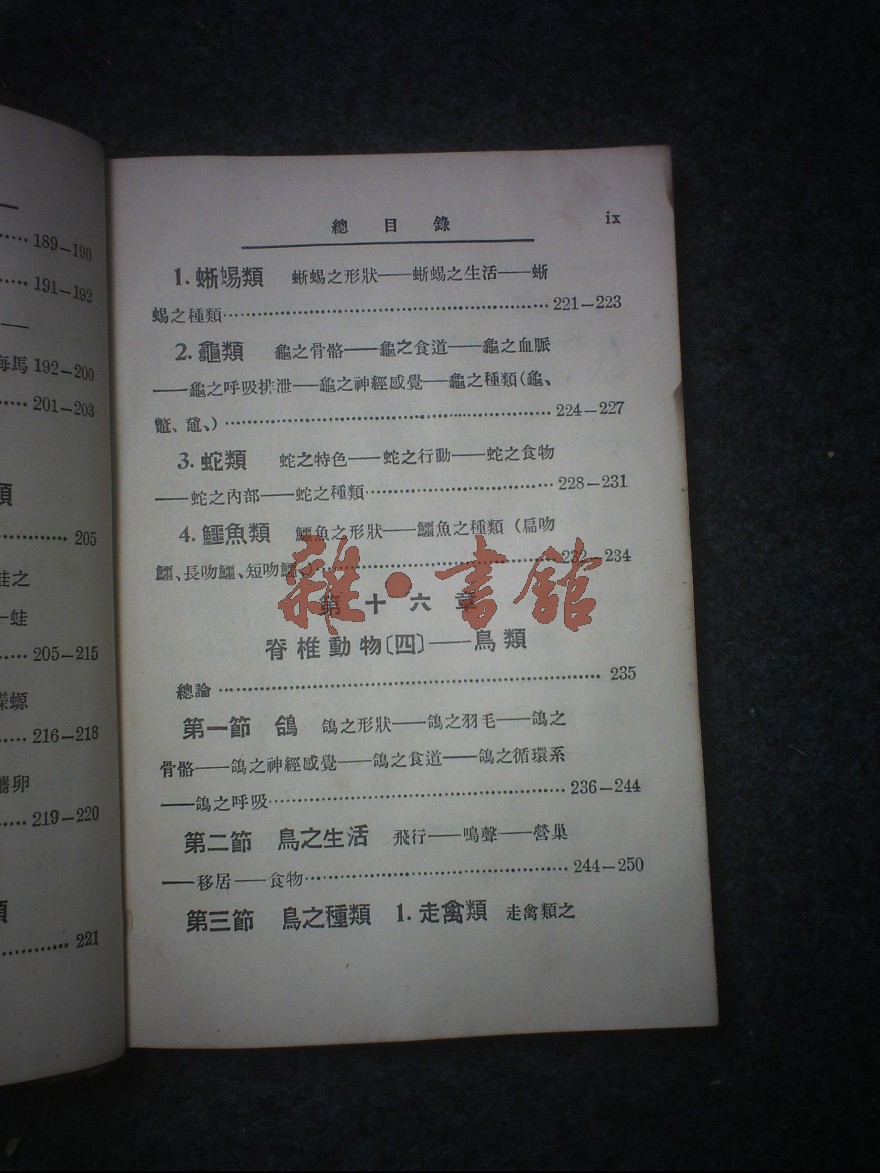 189—190
191—192
海馬 192—200
201—203
類
205
蛙之
—蛙
205—215
蠑螈
216—218
蟠卵
219—220
類
221
總目錄 ix
1. 蜥蜴類 蜥蜴之形狀——蜥蜴之生活——蜥
蜴之種類 221—223
2. 龜類 龜之骨骼——龜之食道——龜之血脈
——龜之呼吸排泄——龜之神經感覺——龜之種類(龜、
鼈、黿、) 224—227
3. 蛇類 蛇之特色——蛇之行動——蛇之食物
——蛇之內部——蛇之種類 228—231
4. 鱷魚類 鱷魚之形狀——鱷魚之種類(扁吻
鱷、長吻鱷、短吻鱷、) 232—234
雜·書館
第十六章
脊椎動物〔四〕——鳥類
總論 235
第一節 鴿 鴿之形狀——鴿之羽毛——鴿之
骨骼——鴿之神經感覺——鴿之食道——鴿之循環系
——鴿之呼吸 236—244
第二節 鳥之生活 飛行——鳴聲——營巢
——移居——食物 244—250
第三節 鳥之種類 1. 走禽類 走禽類之